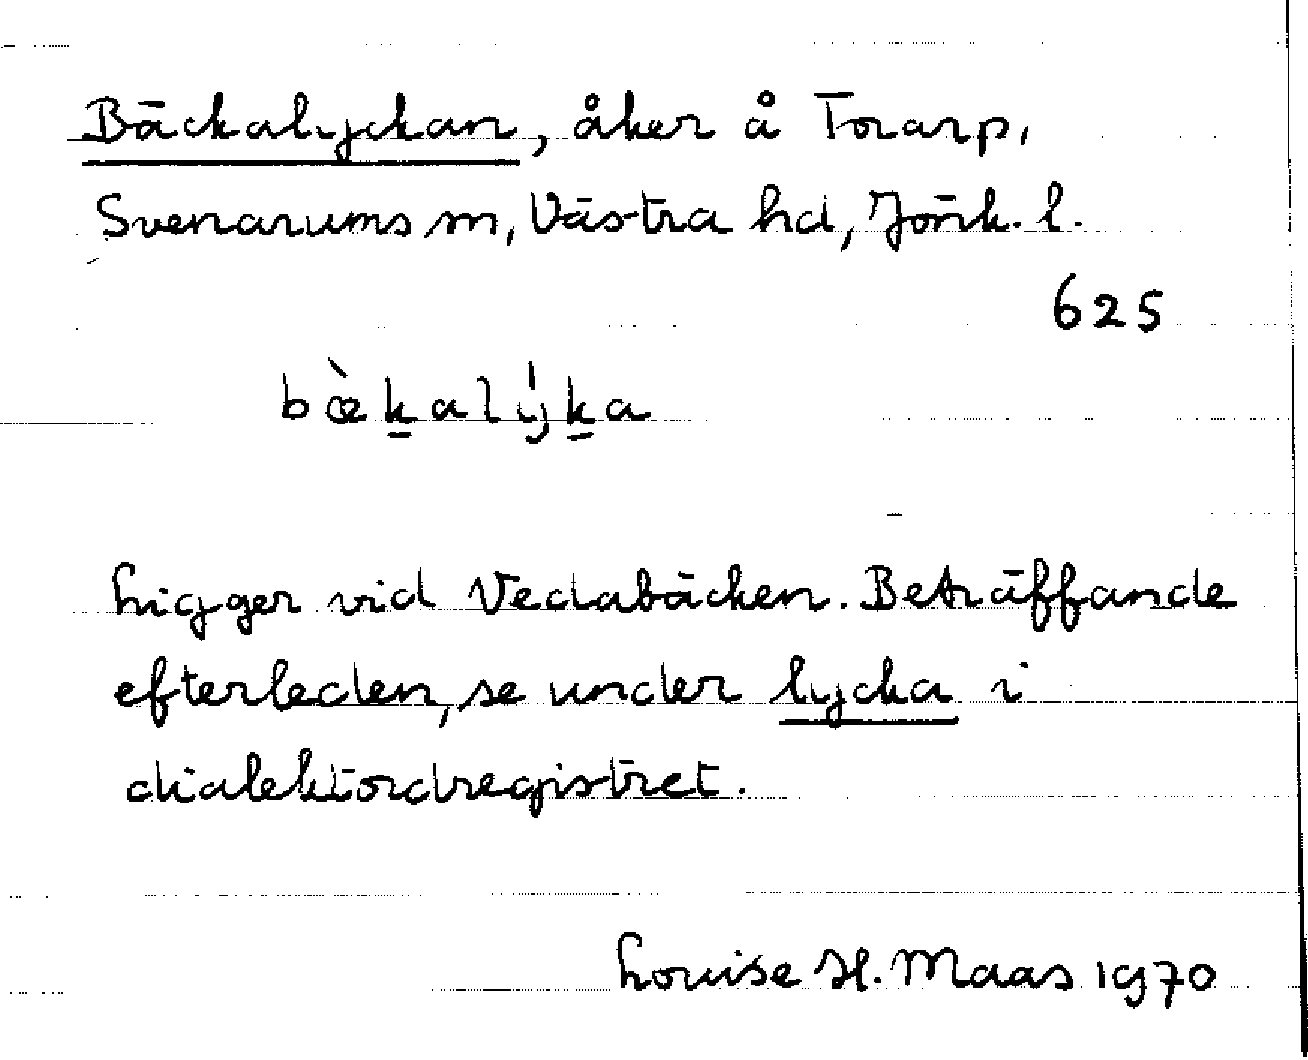 Bäckalyckan, åker å Torarp,
Svenarums sn, Västra hd, Jönk. l.
625
bæ̀k̲alýk̲a
Ligger vid Vedabäcken. Beträffande
efterleden, se under lycka i
dialektordregistret.
Louise H. Maas 1970